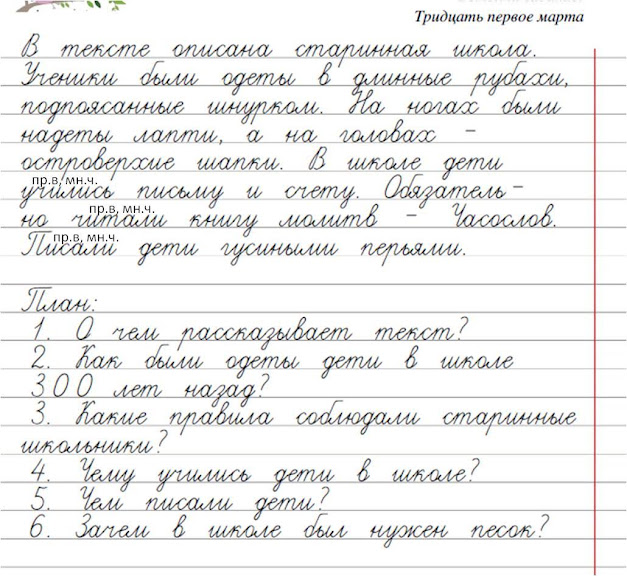 Тридцать первое марта
В тексте описана старинная школа.
Ученики были одеты в длинные рубахи,
подпоясанные шнурком. На ногах были
надеты лапти, а на головах -
островерхие шапки. В школе дети
пр.в, мн.ч.
учились письму и счету. Обязатель-
пр.в, мн.ч.
но читали книгу молитв - Часослов.
пр.в, мн.ч.
Писали дети гусиными перьями.
План:
1. О чем рассказывает текст?
2. Как были одеты дети в школе
300 лет назад?
3. Какие правила соблюдали старинные
школьники?
4. Чему учились дети в школе?
5. Чем писали дети?
6. Зачем в школе был нужен песок?